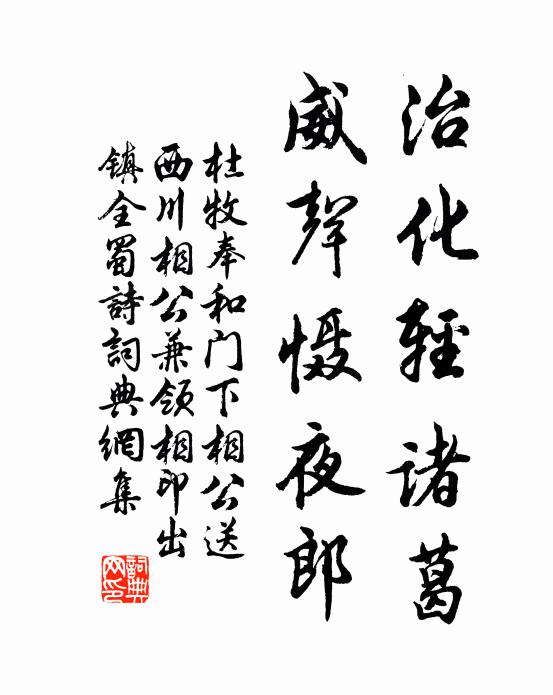 治化輕诸葛
威聲慑夜郎
杜牧奉和门下相公送
西川相公兼领相印出
镇全蜀詩詞典網集
詞典
网印